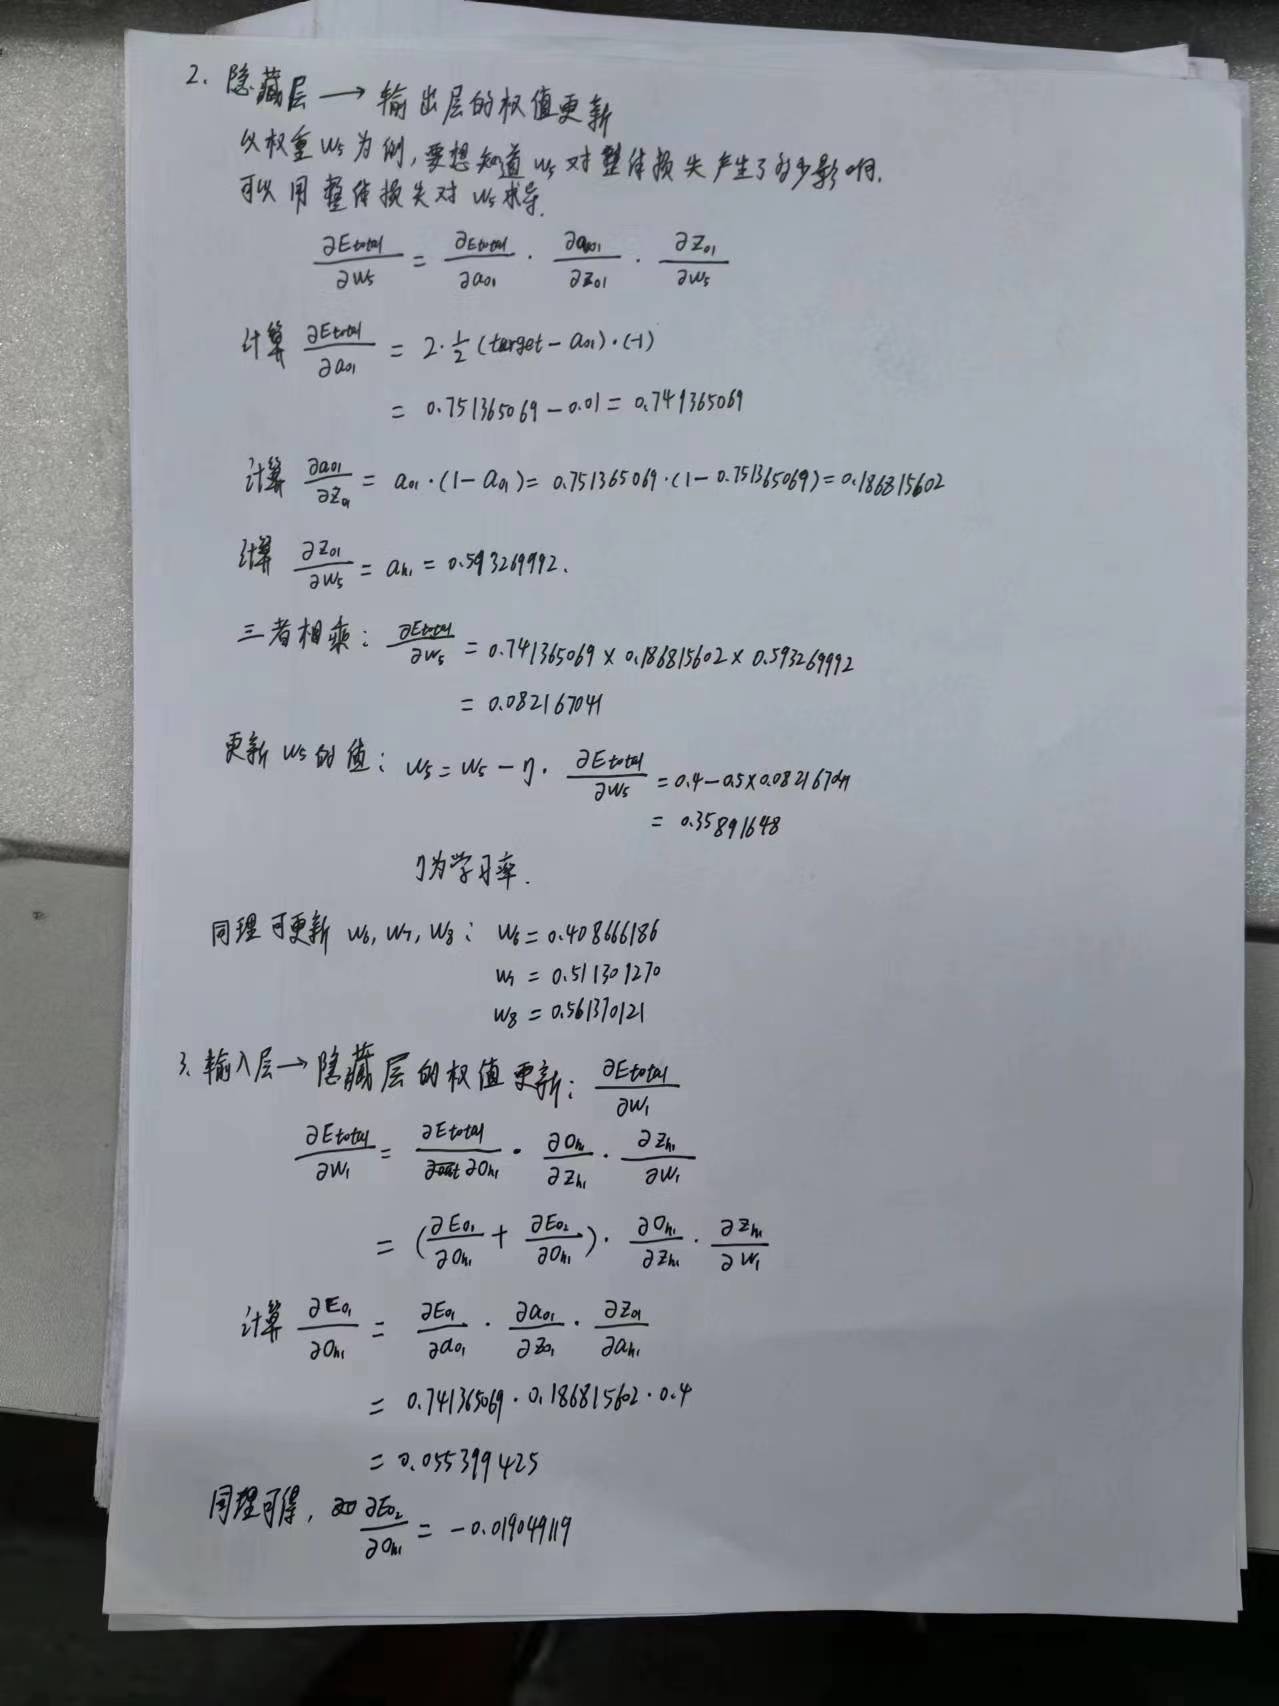 2. 隐藏层 → 输出层的权值更新
以权重 w₅ 为例,要想知道 w₅ 对整体损失产生了多少影响.
可以用整体损失对 w₅ 求导.
∂Etotal/∂w₅ = ∂Etotal/∂a₀₁ · ∂a₀₁/∂z₀₁ · ∂z₀₁/∂w₅
计算 ∂Etotal/∂a₀₁ = 2·½(target − a₀₁)·(−1)
= 0.751365069 − 0.01 = 0.741365069
计算 ∂a₀₁/∂z₀₁ = a₀₁·(1 − a₀₁) = 0.751365069·(1 − 0.751365069) = 0.186815602
计算 ∂z₀₁/∂w₅ = aₕ₁ = 0.593269992.
三者相乘: ∂Etotal/∂w₅ = 0.741365069 × 0.186815602 × 0.593269992
= 0.082167041
更新 w₅ 的值: w₅ = w₅ − η · ∂Etotal/∂w₅ = 0.4 − 0.5×0.082167041
= 0.35891648
η为学习率.
同理可更新 w₆, w₇, w₈: w₆ = 0.408666186
w₇ = 0.511301270
w₈ = 0.561370121
3. 输入层 → 隐藏层的权值更新: ∂Etotal/∂w₁
∂Etotal/∂w₁ = ∂Etotal/∂Oₕ₁ · ∂Oₕ₁/∂zₕ₁ · ∂zₕ₁/∂w₁
= (∂E₀₁/∂Oₕ₁ + ∂E₀₂/∂Oₕ₁) · ∂Oₕ₁/∂zₕ₁ · ∂zₕ₁/∂w₁
计算 ∂E₀₁/∂Oₕ₁ = ∂E₀₁/∂a₀₁ · ∂a₀₁/∂z₀₁ · ∂z₀₁/∂aₕ₁
= 0.741365069 · 0.186815602 · 0.4
= 0.055399425
同理可得, ∂E₀₂/∂Oₕ₁ = −0.019049119